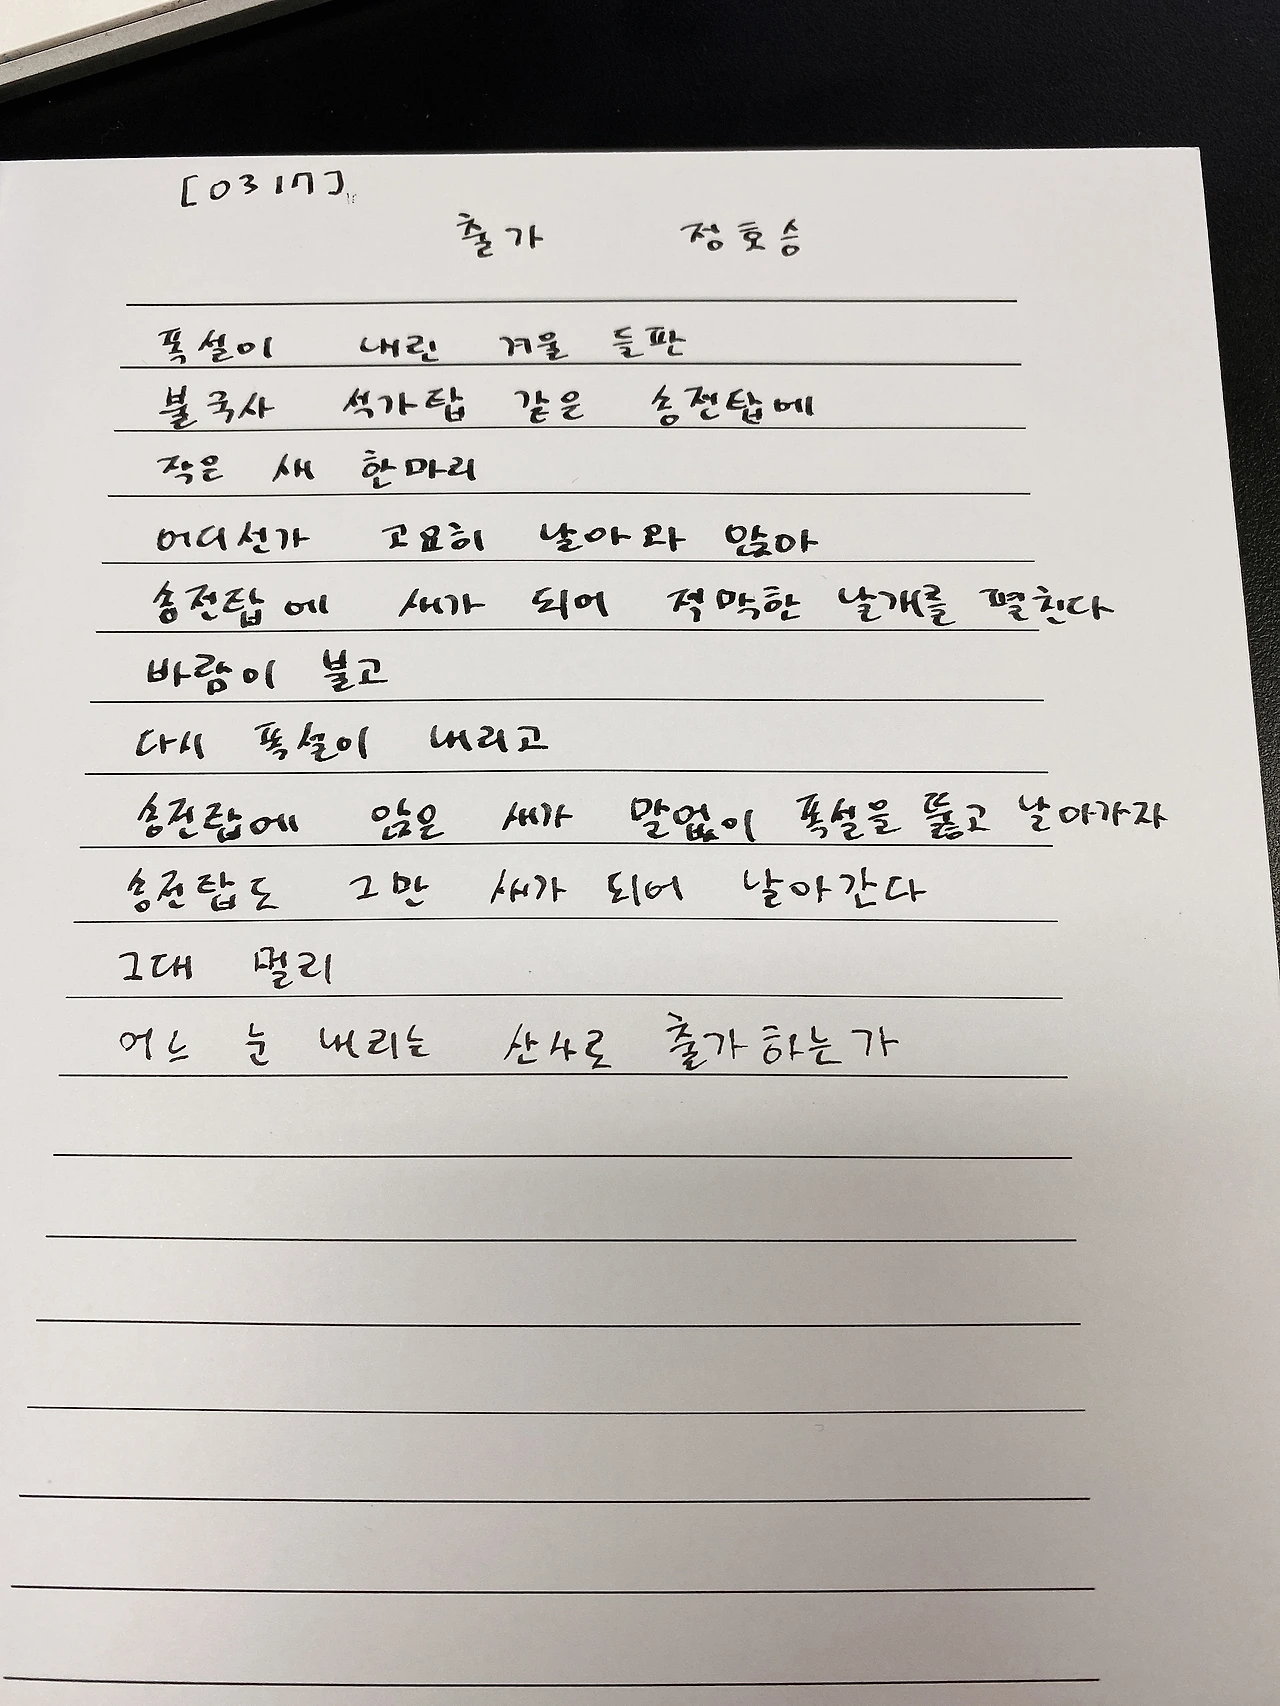 [0317]
출가 정호승
폭설이 내린 겨울 들판
불국사 석가탑 같은 송전탑에
작은 새 한마리
어디선가 고요히 날아와 앉아
송전탑에 새가 되어 적막한 날개를 펼친다
바람이 불고
다시 폭설이 내리고
송전탑에 앉은 새가 말없이 폭설을 뚫고 날아가자
송전탑도 그만 새가 되어 날아간다
그대 멀리
어느 눈 내리는 산사로 출가하는가